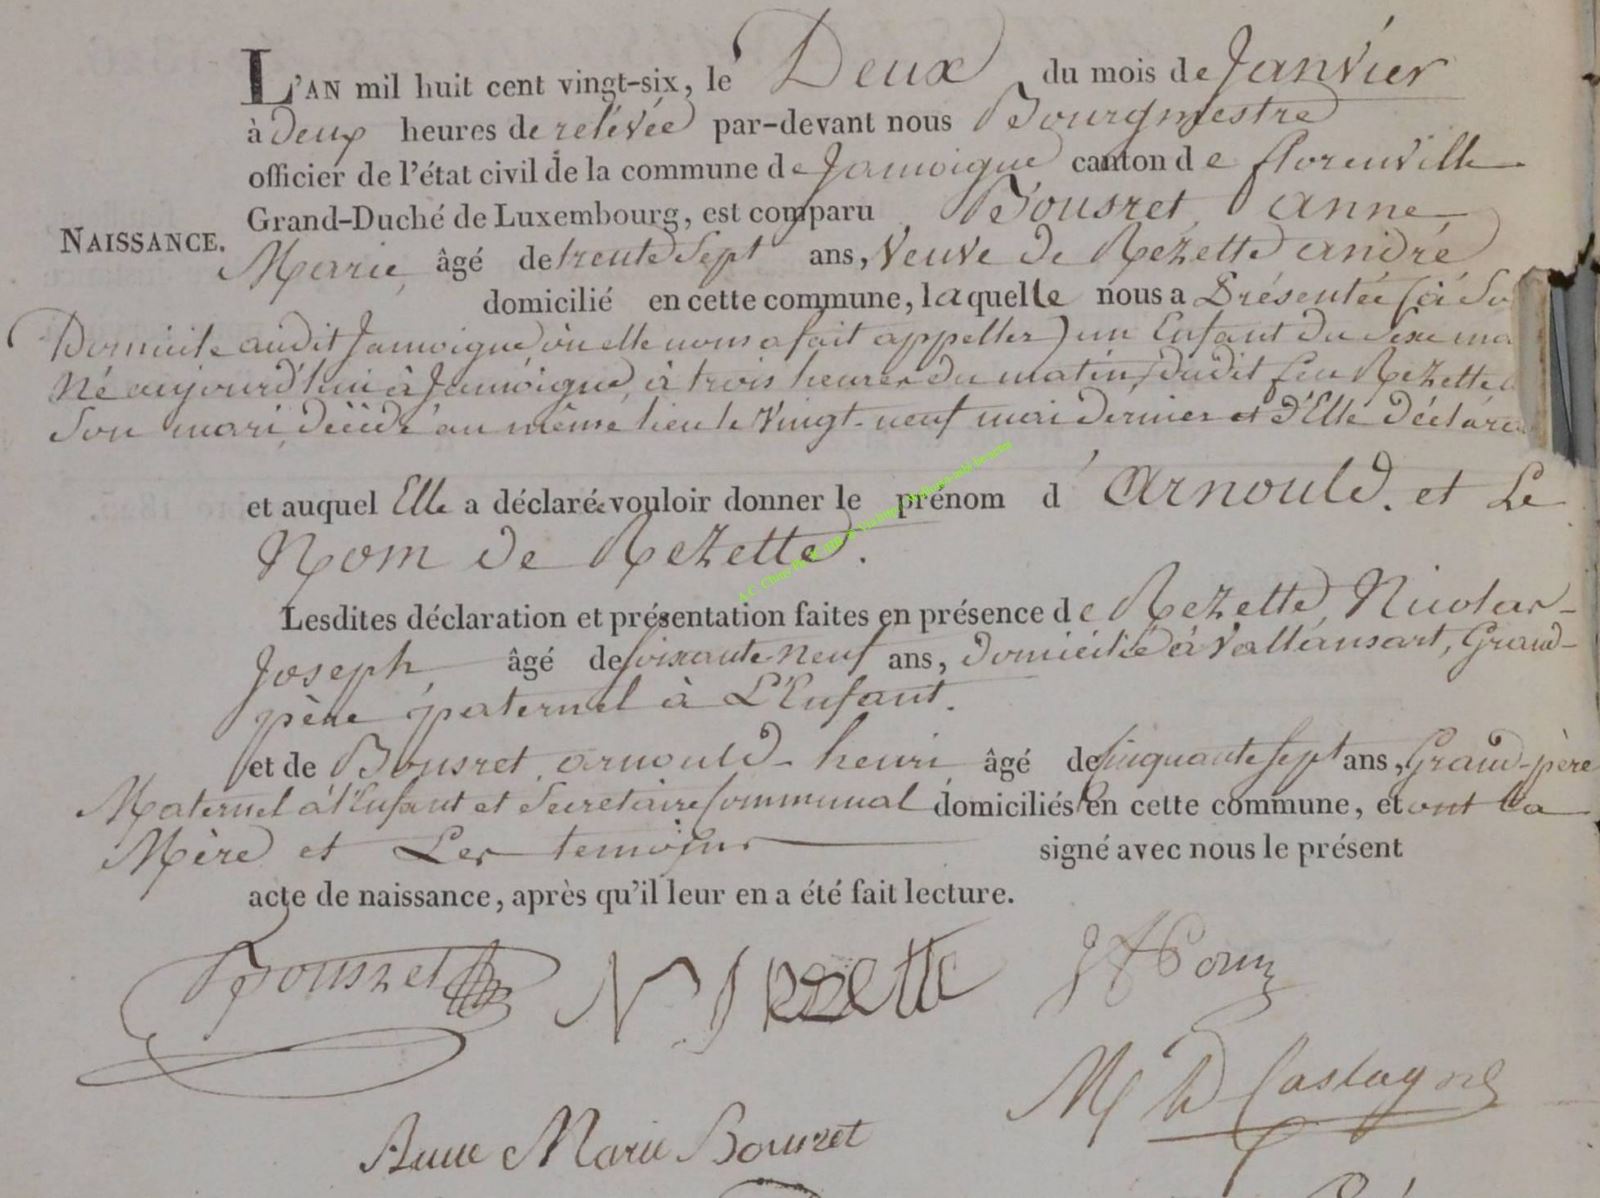 L'AN mil huit cent vingt-six, le Deux du mois de Janvier
à deux heures de relévée par-devant nous Bourgmestre
officier de l'état civil de la commune de Jamoigne canton de florenville
Grand-Duché de Luxembourg, est comparu Bousret, anne
NAISSANCE.
Marie, âgé de trente Sept ans, Veuve de Rezette andré
domicilié en cette commune, laquelle nous a Présentée (à So
Domicile audit Jamoigne où elle nous a fait appeller) un Enfant du sexe ma
Né aujourd'hui à Jamoigne, à trois heures du matin, dudit feu Rezette
Son mari, décidé au même lieu le Vingt-neuf mai dernier et d'Elle déclara
et auquel Elle a déclaré vouloir donner le prénom d'Arnould. et Le
Nom de Rezette.
Lesdites déclaration et présentation faites en présence de Rezette, Nicolas-
Joseph, âgé de soixante neuf ans, domicilié à Vallansart, Grand-
père paternel à L'Enfant.
et de Bousret, arnould-henri, âgé de Cinquante sept ans, Grand-père
Maternel à l'Enfant et Secretaire Communal domiciliés en cette commune, et ont La
Mère et Les temoins signé avec nous le présent
acte de naissance, après qu'il leur en a été fait lecture.
Bousret N J Rezette
M D Castagne
Anne Marie Bousret